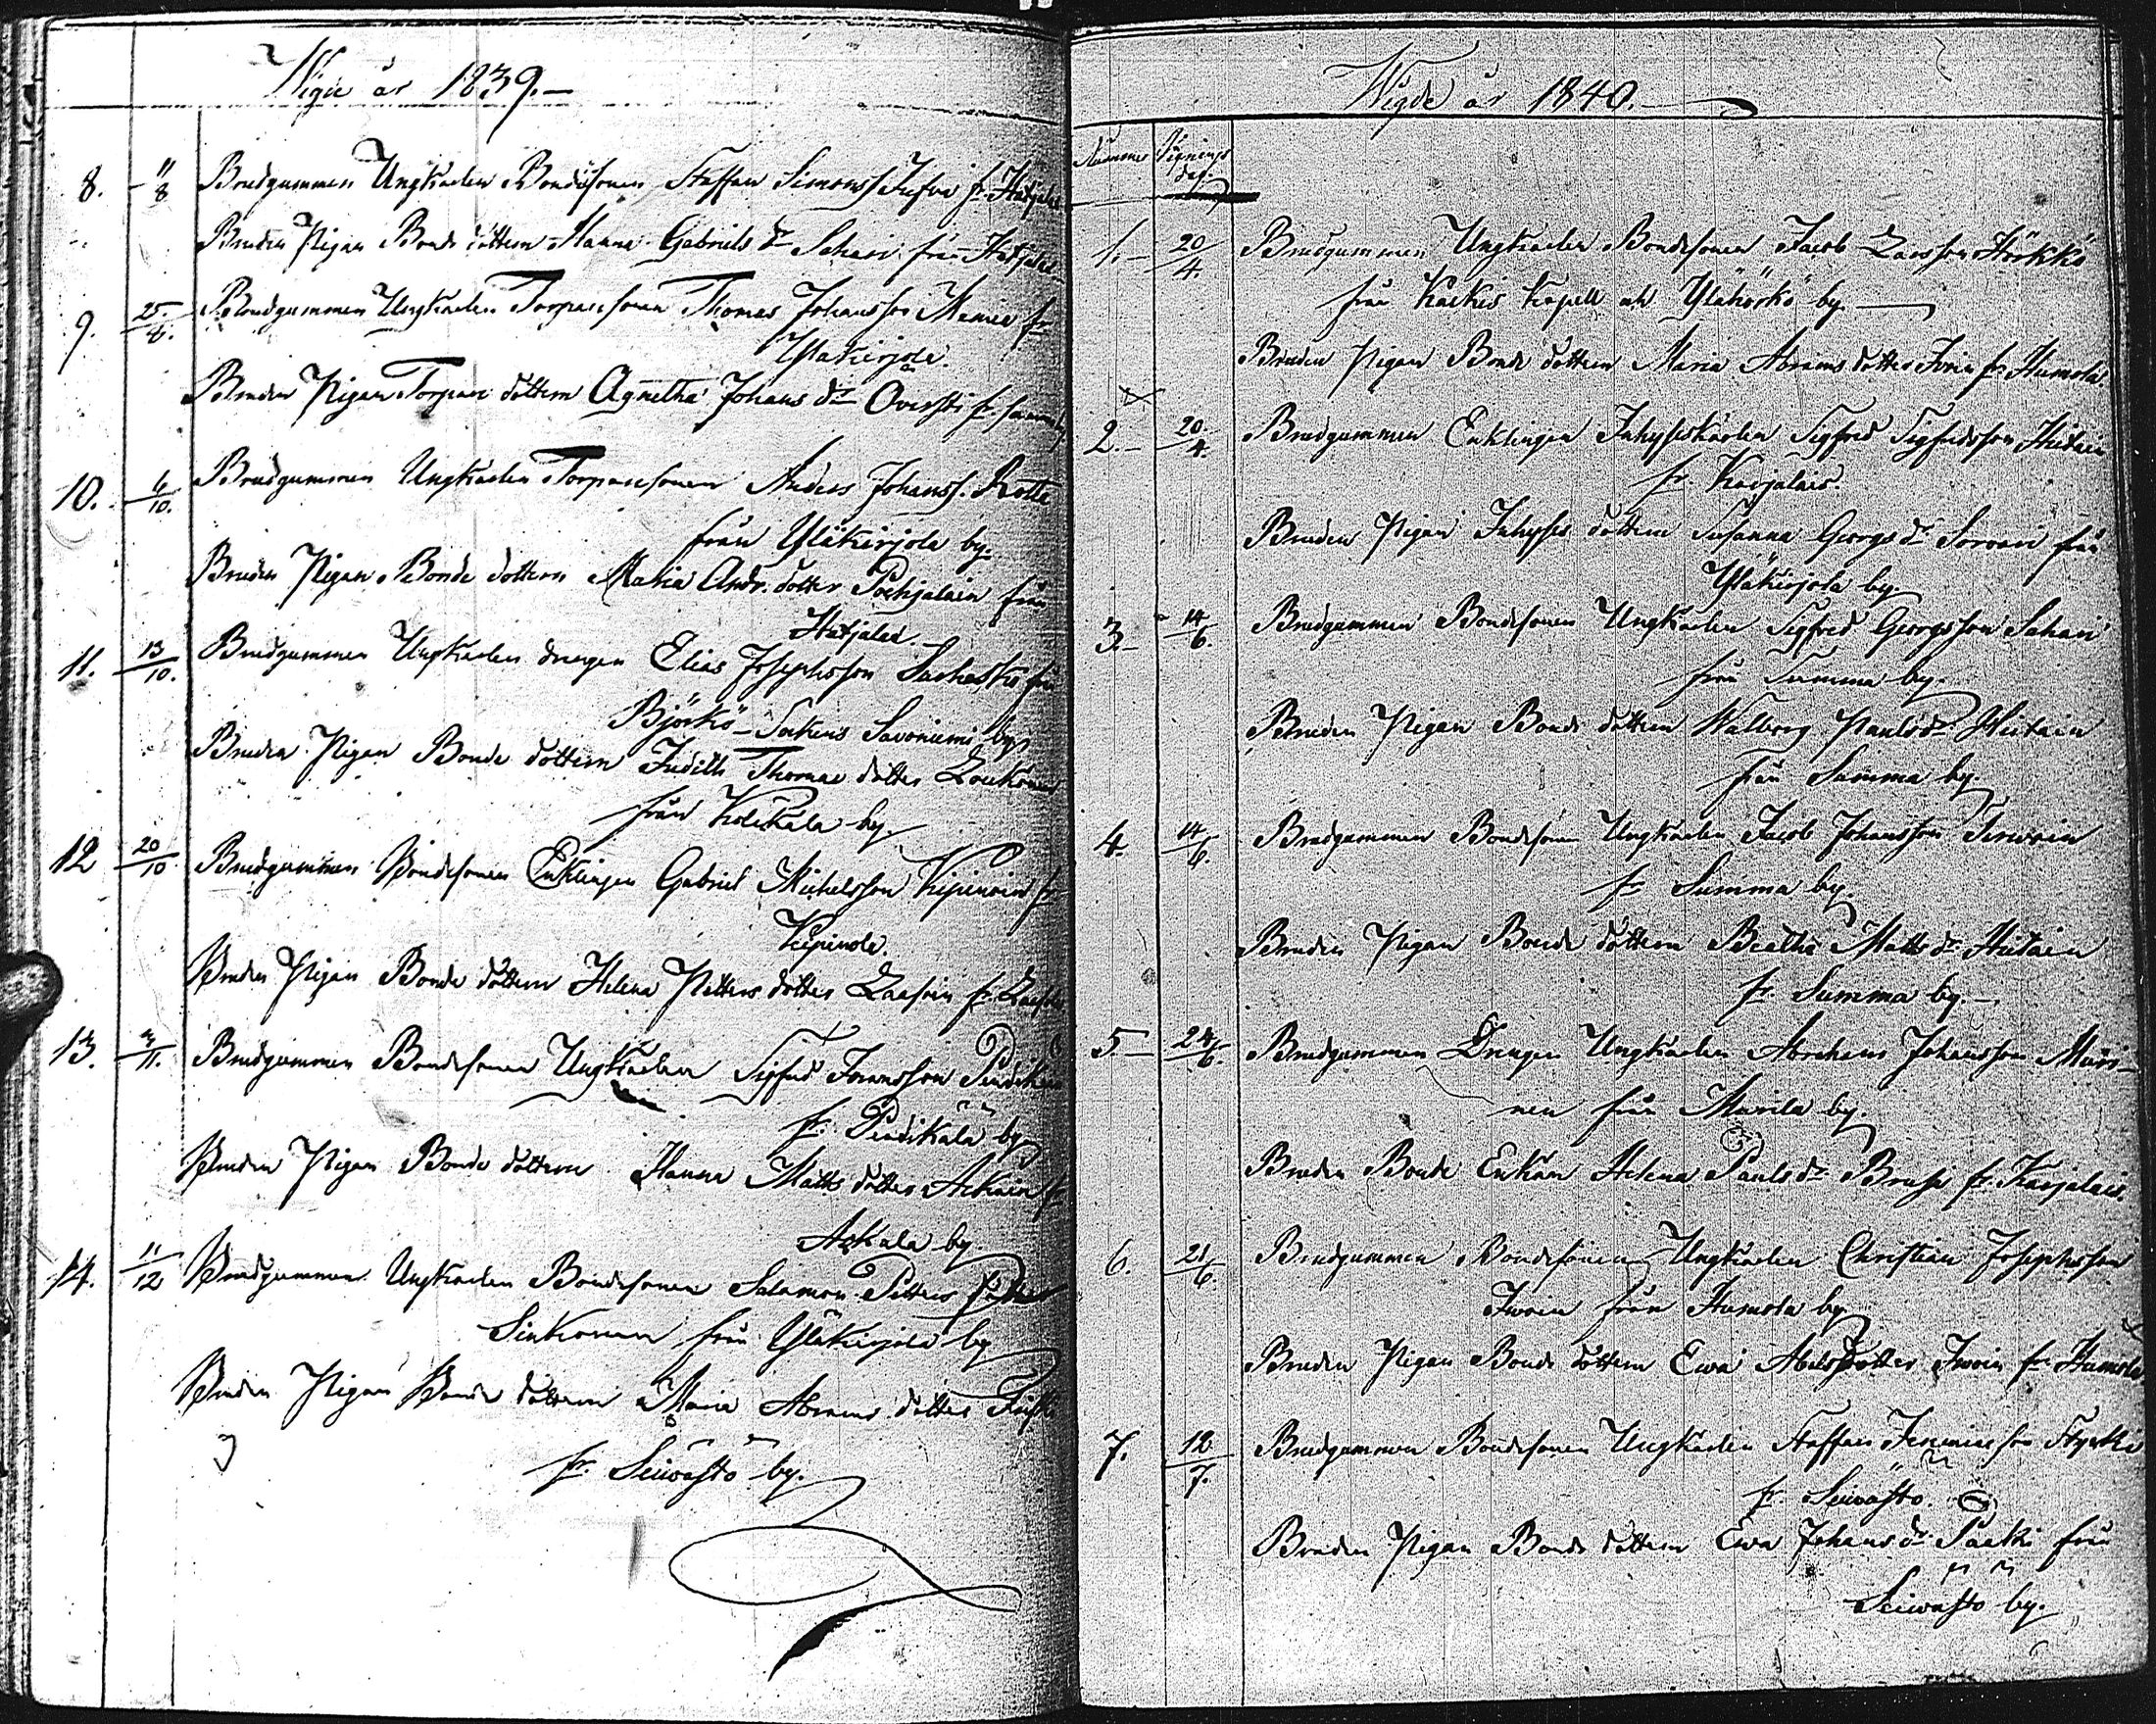 Wigde år 1839.
8. 11/8 Brudgummen Ungkarlen Bondesonen Staffan Simonss.
Bruden Pigan Bonde dottern Hanna Gabriels dr Sahari från Hatjalax
9. 25/8. Brudgummen Ungkarlen Torparesonen Thomas Johansson fr
Yläkirjola.
Bruden Pigan Torpare dottern Agnetha Johans dr Oversti fr samma
10. 6/10. Brudgummen Ungkarlen Torparesonen Anders Johanss. Rotta
från Yläkirjola by.
Bruden Pigan Bonde dottern Maria Andr. dotter Pohjalain från
Hatjalax
11. 13/10. Brudgummen Ungkarlen drengen Elias Josephsson från
Björkö Sockens Savoniemi by
Bruden Pigan Bonde dottern Judith Thomae dotter Loukonen
från Kolkkala by.
12 20/10 Brudgummen Bondesonen Enklingen Gabriel Michelsson Kipinoin fr
Kipinola.
Bruden Pigan Bonde dottern Helena Petters dotter Laasoin fr.
13. 3/11. Brudgummen Bondesonen Ungkarlen Sigfrid
fr. Pentikälä by
Bruden Pigan Bonde dottern Hanna Matts dotter Askain fr
Askala by
14. 11/12 Brudgummen Ungkarlen Bondesonen Salomon Petters
Sinkonen från Yläkirjola by
Bruden Pigan Bonde dottern Maria Abrams dotter
fr. Seiwästö by.
Wigde år 1840.
Nummer Vignings
dag.
1. 20/4. Brudgummen Ungkarlen Bondesonen Jacob Larsson Hörkkö
från Kaskis Kapell och by.
Bruden Pigan Bonde dottern Maria Abrams dotter Ivoin fr Humola.
2. 20/4. Brudgummen Enklingen Inhyseskarlen Sigfred Sigfredsson Hietain
fr Karjalais.
Bruden Pigan Inhyses dottern Susanna Georgs dr Sorvari från
Yläkirjola by
3. 14/6. Brudgummen Bondesonen Ungkarlen Sigfred Georgsson Sahari
från Summa by.
Bruden Pigan Bonde dottern Walborg Pauls dr Hietain
från Summa by.
4. 14/6. Brudgummen Bondesonen Ungkarlen Jacob Johansson
fr Summa by.
Bruden Pigan Bonde dottern Beatha Matts dr Hietain
fr. Summa by.
5 24/6. Brudgummen Drengen Ungkarlen Abraham Johansson Muuri-
nen från Muurila by.
Bruden Bonde Enkan Helena Pauls dr fr. Karjalais.
6. 21/6. Brudgummen Bondesonen Ungkarlen Christian Josephsson
Ivoin från Humola by
Bruden Pigan Bonde dottern Ewa Abelsdotter Ivoin fr Humola
7. 12/7. Brudgummen Bondesonen Ungkarlen Staffan
fr. Seiwästö.
Bruden Pigan Bonde dottern Ewa Johans dr från
Seiwästö by.